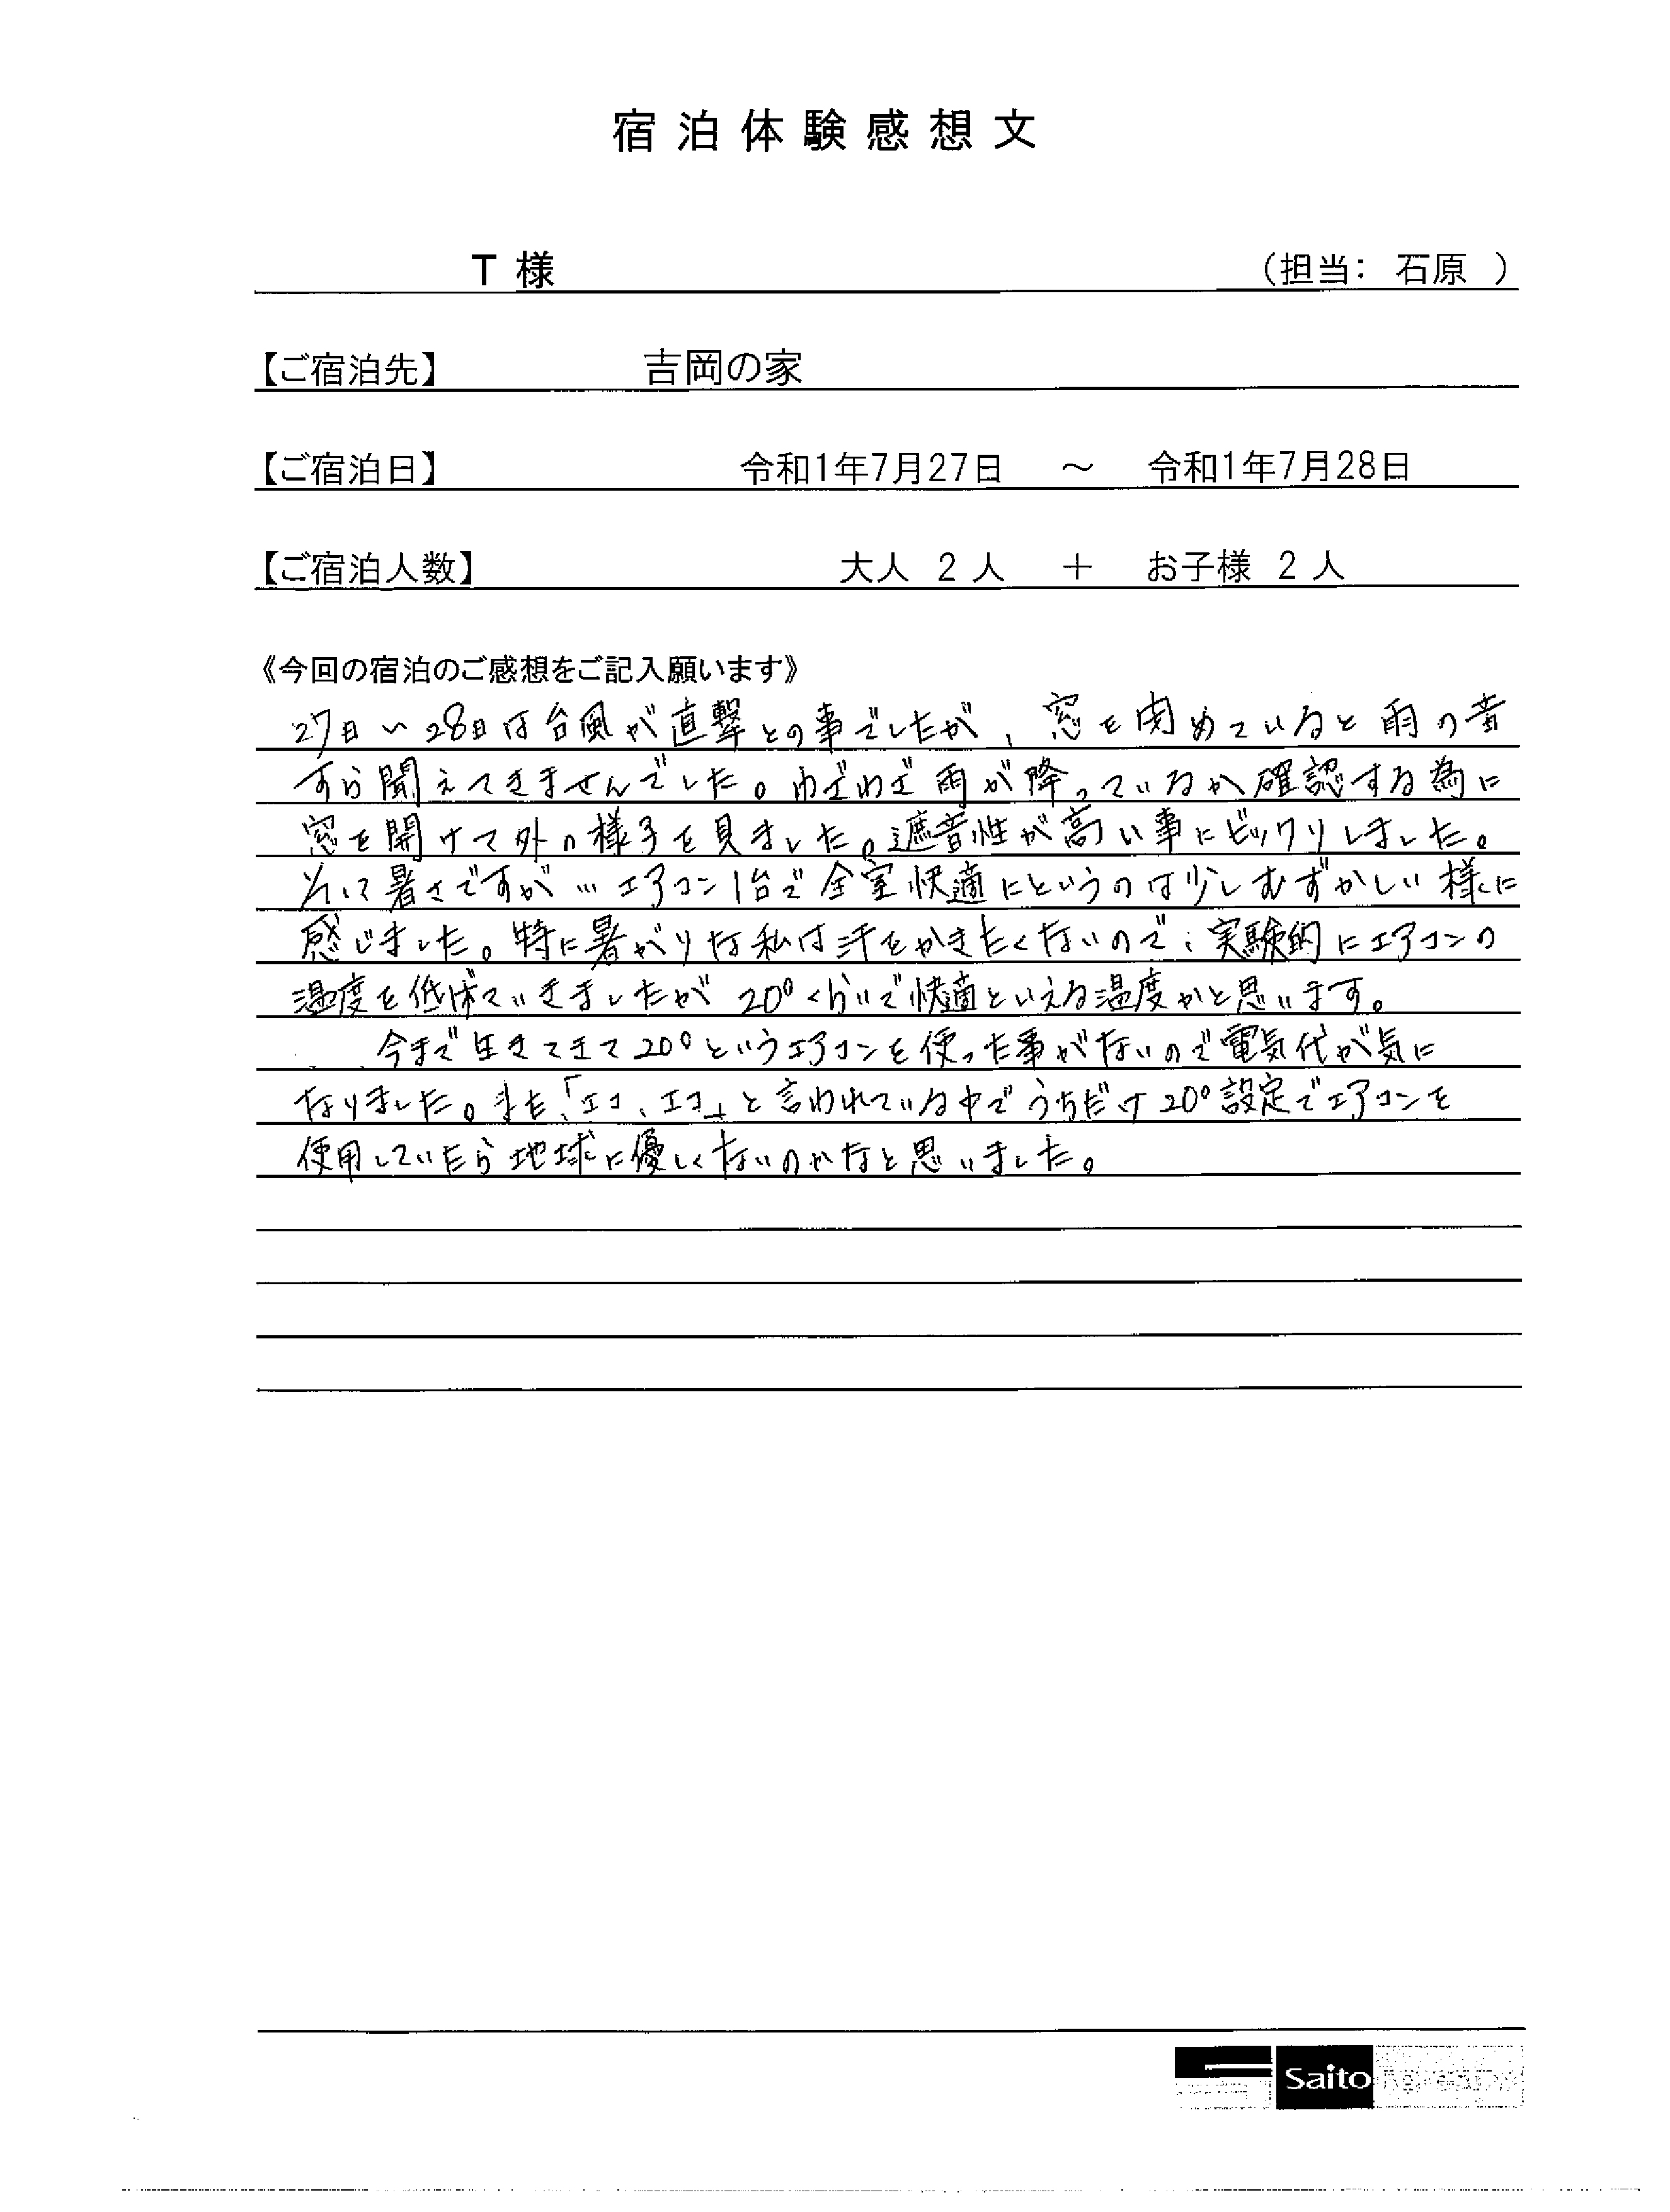 宿泊体験感想文
T 様 （担当： 石原 ）
【ご宿泊先】 吉岡の家
【ご宿泊日】 令和1年7月27日 ～ 令和1年7月28日
【ご宿泊人数】 大人 2 人 ＋ お子様 2 人
《今回の宿泊のご感想をご記入願います》
27日～28日は台風が直撃との事でしたが、窓を閉めていると雨の音
すら聞えてきませんでした。わざわざ雨が降っているか確認する為に
窓を開けて外の様子を見ました。遮音性が高い事にビックリしました。
そして暑さですが…エアコン1台で全室快適にというのは少しむずかしい様に
感じました。特に暑がりな私は汗をかきたくないので、実験的にエアコンの
温度を低げていきましたが20°くらいで快適といえる温度かと思います。
今まで生きてきて20°というエアコンを使った事がないので電気代が気に
なりました。また、「エコ、エコ」と言われている中でうちだけ20°設定でエアコンを
使用していたら地球に優しくないのかなと思いました。
Saito